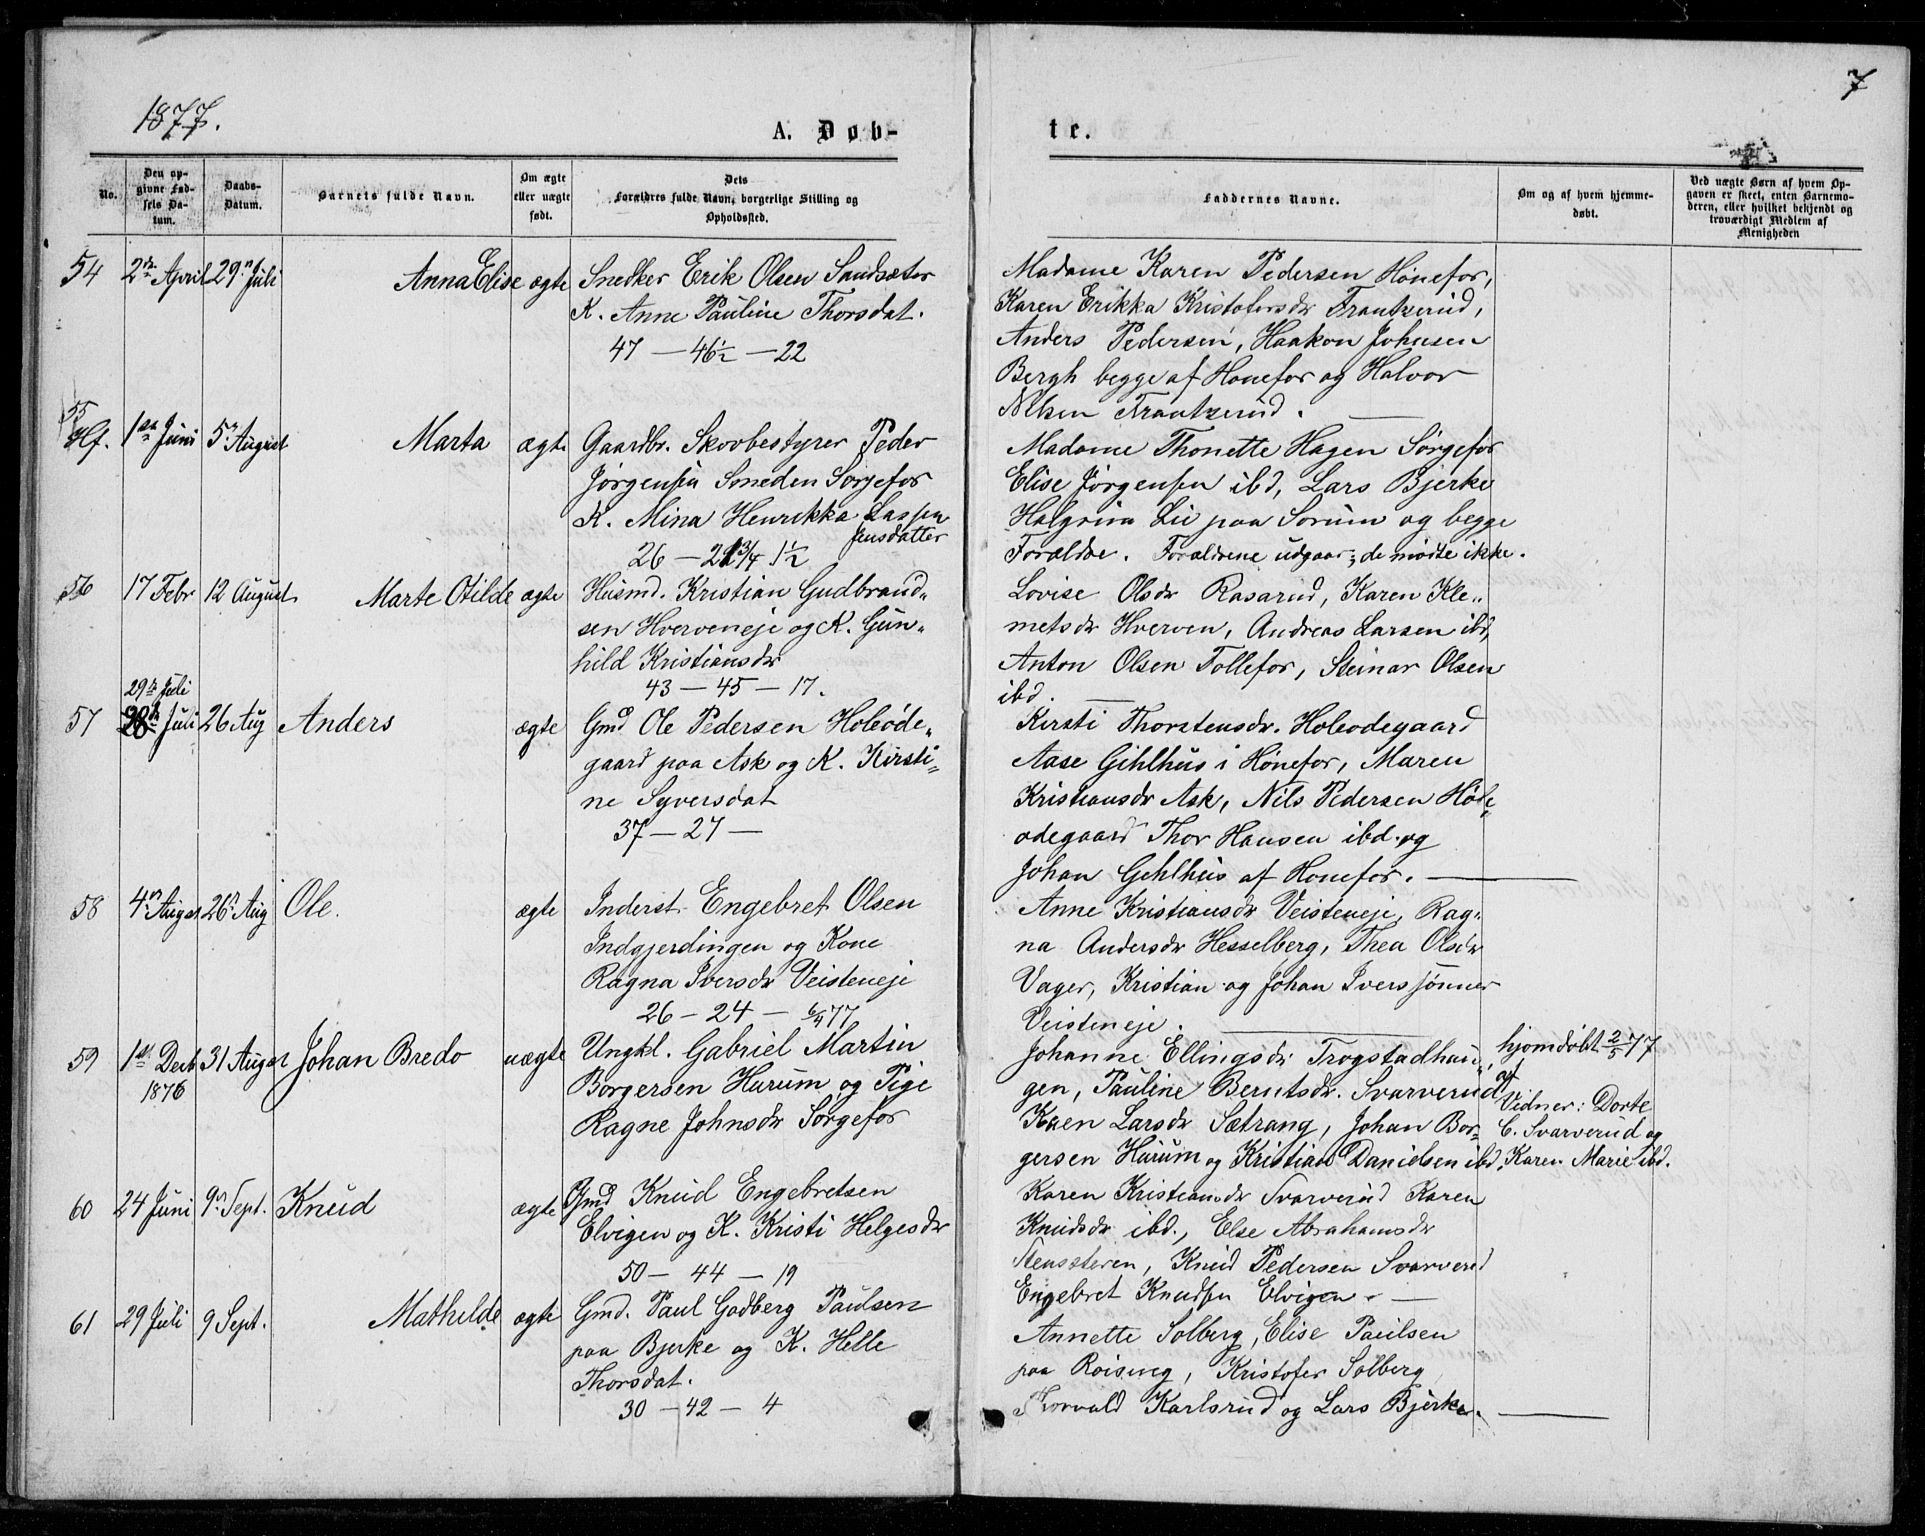 1877.
7
A. Døb-
te.
No.
Den op-
givne Fød-
sels Da-
tum.
Daabs-
Datum.
Barnets fulde Navn.
Om ægte
eller uægte
født.
Dets
Forældres fulde Navn, borgerlige Stilling og
Opholdssted.
Faddernes Navne.
Om og af hvem hjemme-
døbt.
Ved uægte Børn af hvem Op-
gaven er skeet, enten Barnemo-
deren, eller hvilket bekjendt og
troværdigt Medlem af
Menigheden
54 2den April 29n Juli Anna Elise ægte Snedker Erik Olsen Sandsæter
K. Anne Pauline Thorsdat.
47 — 46½ — 22
Madame Karen Pedersen Hønefos,
Karen Erikka Kristofersdr Frantzerud,
Anders Pedersen, Haakon Johnsen
Bergh begge af Hønefos og Halvor
Nilsen Frantzerud.
55
Hf. 1ste Juni 5n August Marta ægte Gaardbr. Skovbestyrer Peder
Jørgensen Soneden Sørgefos
K. Mina Henrikka Lassen
Jensdatter
26 — 21¾ 1½
Madame Thonette Hagen Sørgefos
Elise Jørgensen ibd, Lars Bjerke
Halgrim Lie paa Sorum og begge
Forældre. Forældrene udgaar; de mødte ikke.
56 17 Febr 12 August Marte Otilde ægte Husmd. Kristian Gudbrand-
sen Hverveneje og K. Gun-
hild Kristiansdr
43 — 45 — 17.
Lovise Olsdr Rasarud, Karen Kle-
metsdr Hverven, Andreas Larsen ibd,
Anton Olsen Tollefor, Steinar Olsen
ibd.
29de Juli
57 28de Juli 26 Aug Anders ægte Gmd Ole Pedersen Holeøde-
gaard paa Ask og K. Kirsti-
ne Syversdat
37 — 27 —
Kirsti Thorstensdr. Holeodegaard
Aase Gihlhus i Hønefos, Maren
Kristiansdr Ask, Nils Pedersen Hole-
odegaard Thor Hansen ibd. og
Johan Gehlhus af Honefos.
58 4n August 26n Aug Ole. ægte Inderst Engebret Olsen
Indgjerdingen og Kone
Ragna Iversdr Veisteneje
26 — 24 — 6/4 77
Anne Kristiansdr Veisteneje, Rag-
na Andersdr Hesselberg, Thea Olsdr
Vager, Kristian og Johan Iverssønner
Veisteneje.
59 1ste Decb 31 August Johan Bredo uægte Ungkl. Gabriel Martin
1876
Borgersen Hurum og Pige
Ragne Johnsdr Sørgefos
Johanne Ellingsdr Trogstadhau-
gen, Pauline Berntsdr. Svarverud
Kaen Larsdr Sætrang, Johan Bor-
gersen Hurum og Kristian Danielsen ibd.
hjemdøbt 2/5 77
af
Vidner: Dorte
C. Svarverud og
Karen Marie ibd.
60 24 Juni 9n Sept. Knud ægte Gmd Knud Engebretsen
Elvigen og K. Kristi Helgesdr
50 — 44 — 19
Karen Kristiansdr Svarverud Karen
Knudsdr ibd., Else Abrahamsdr
Knud Pedersen Svarverud
Engebret Knudsen Elvigen.
61 29 Juli 9 Sept. Mathilde ægte Gmd. Paul Godberg Paulsen
paa Bjerke og K. Helle
Thorsdat.
30 — 42 — 4
Annette Solberg, Elise Paulsen
paa Roisweg, Kristofer Solberg
Thorvald Karlsrud og Lars Bjerke.